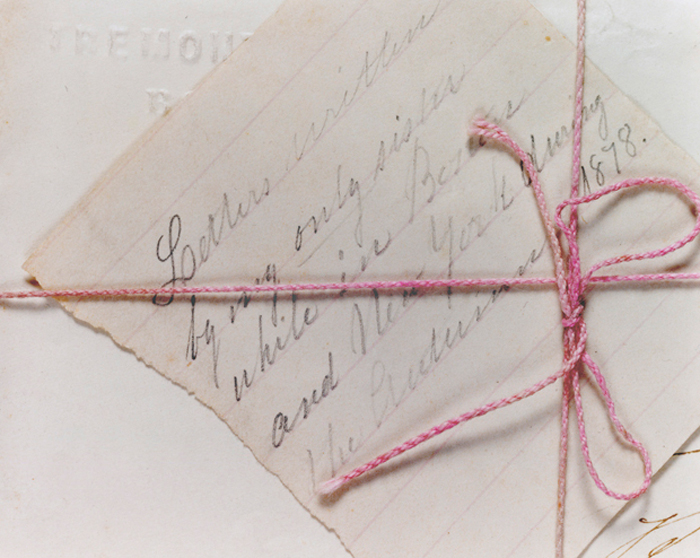 TREMONT
Letters written
by my only sister
while in Boston
and New York during
the Autumn 1878.